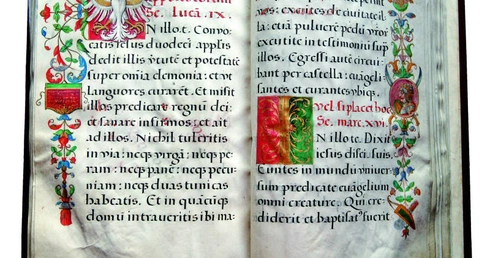 Se. Lucā. ix.
N illo t̄. Convo
catis iesus duodecī applis
dedit illis v̄tutē et potestatē
super om̄ia demonia: et vt
languores curarēt. Et misit
illos predicare regnū dei:
et sanare infirmos: et ait
ad illos. Nichil tuleritis
in via: neq; virgā: neq; pe-
ram: neq; panē: neq; pecu-
niam: neq; duas tunicas
habeatis. Et in quācūq;
domū intraveritis ibi ma:
exeuntes de civitate il-
la: etiā pulverē pedū vr̄or
excutite in testimoniū sup
illos. Egressi autē circui-
bant per castella: euāgeli
santes et curantes vbiq;.
vel si placet hoc
Se. marc. xvi.
N illo t̄e. Dixit
iesus disci. suis.
Euntes in mundū vniuer
sum predicate euāgelium
omni creature. Qui cre-
diderit et baptisat' fuerit